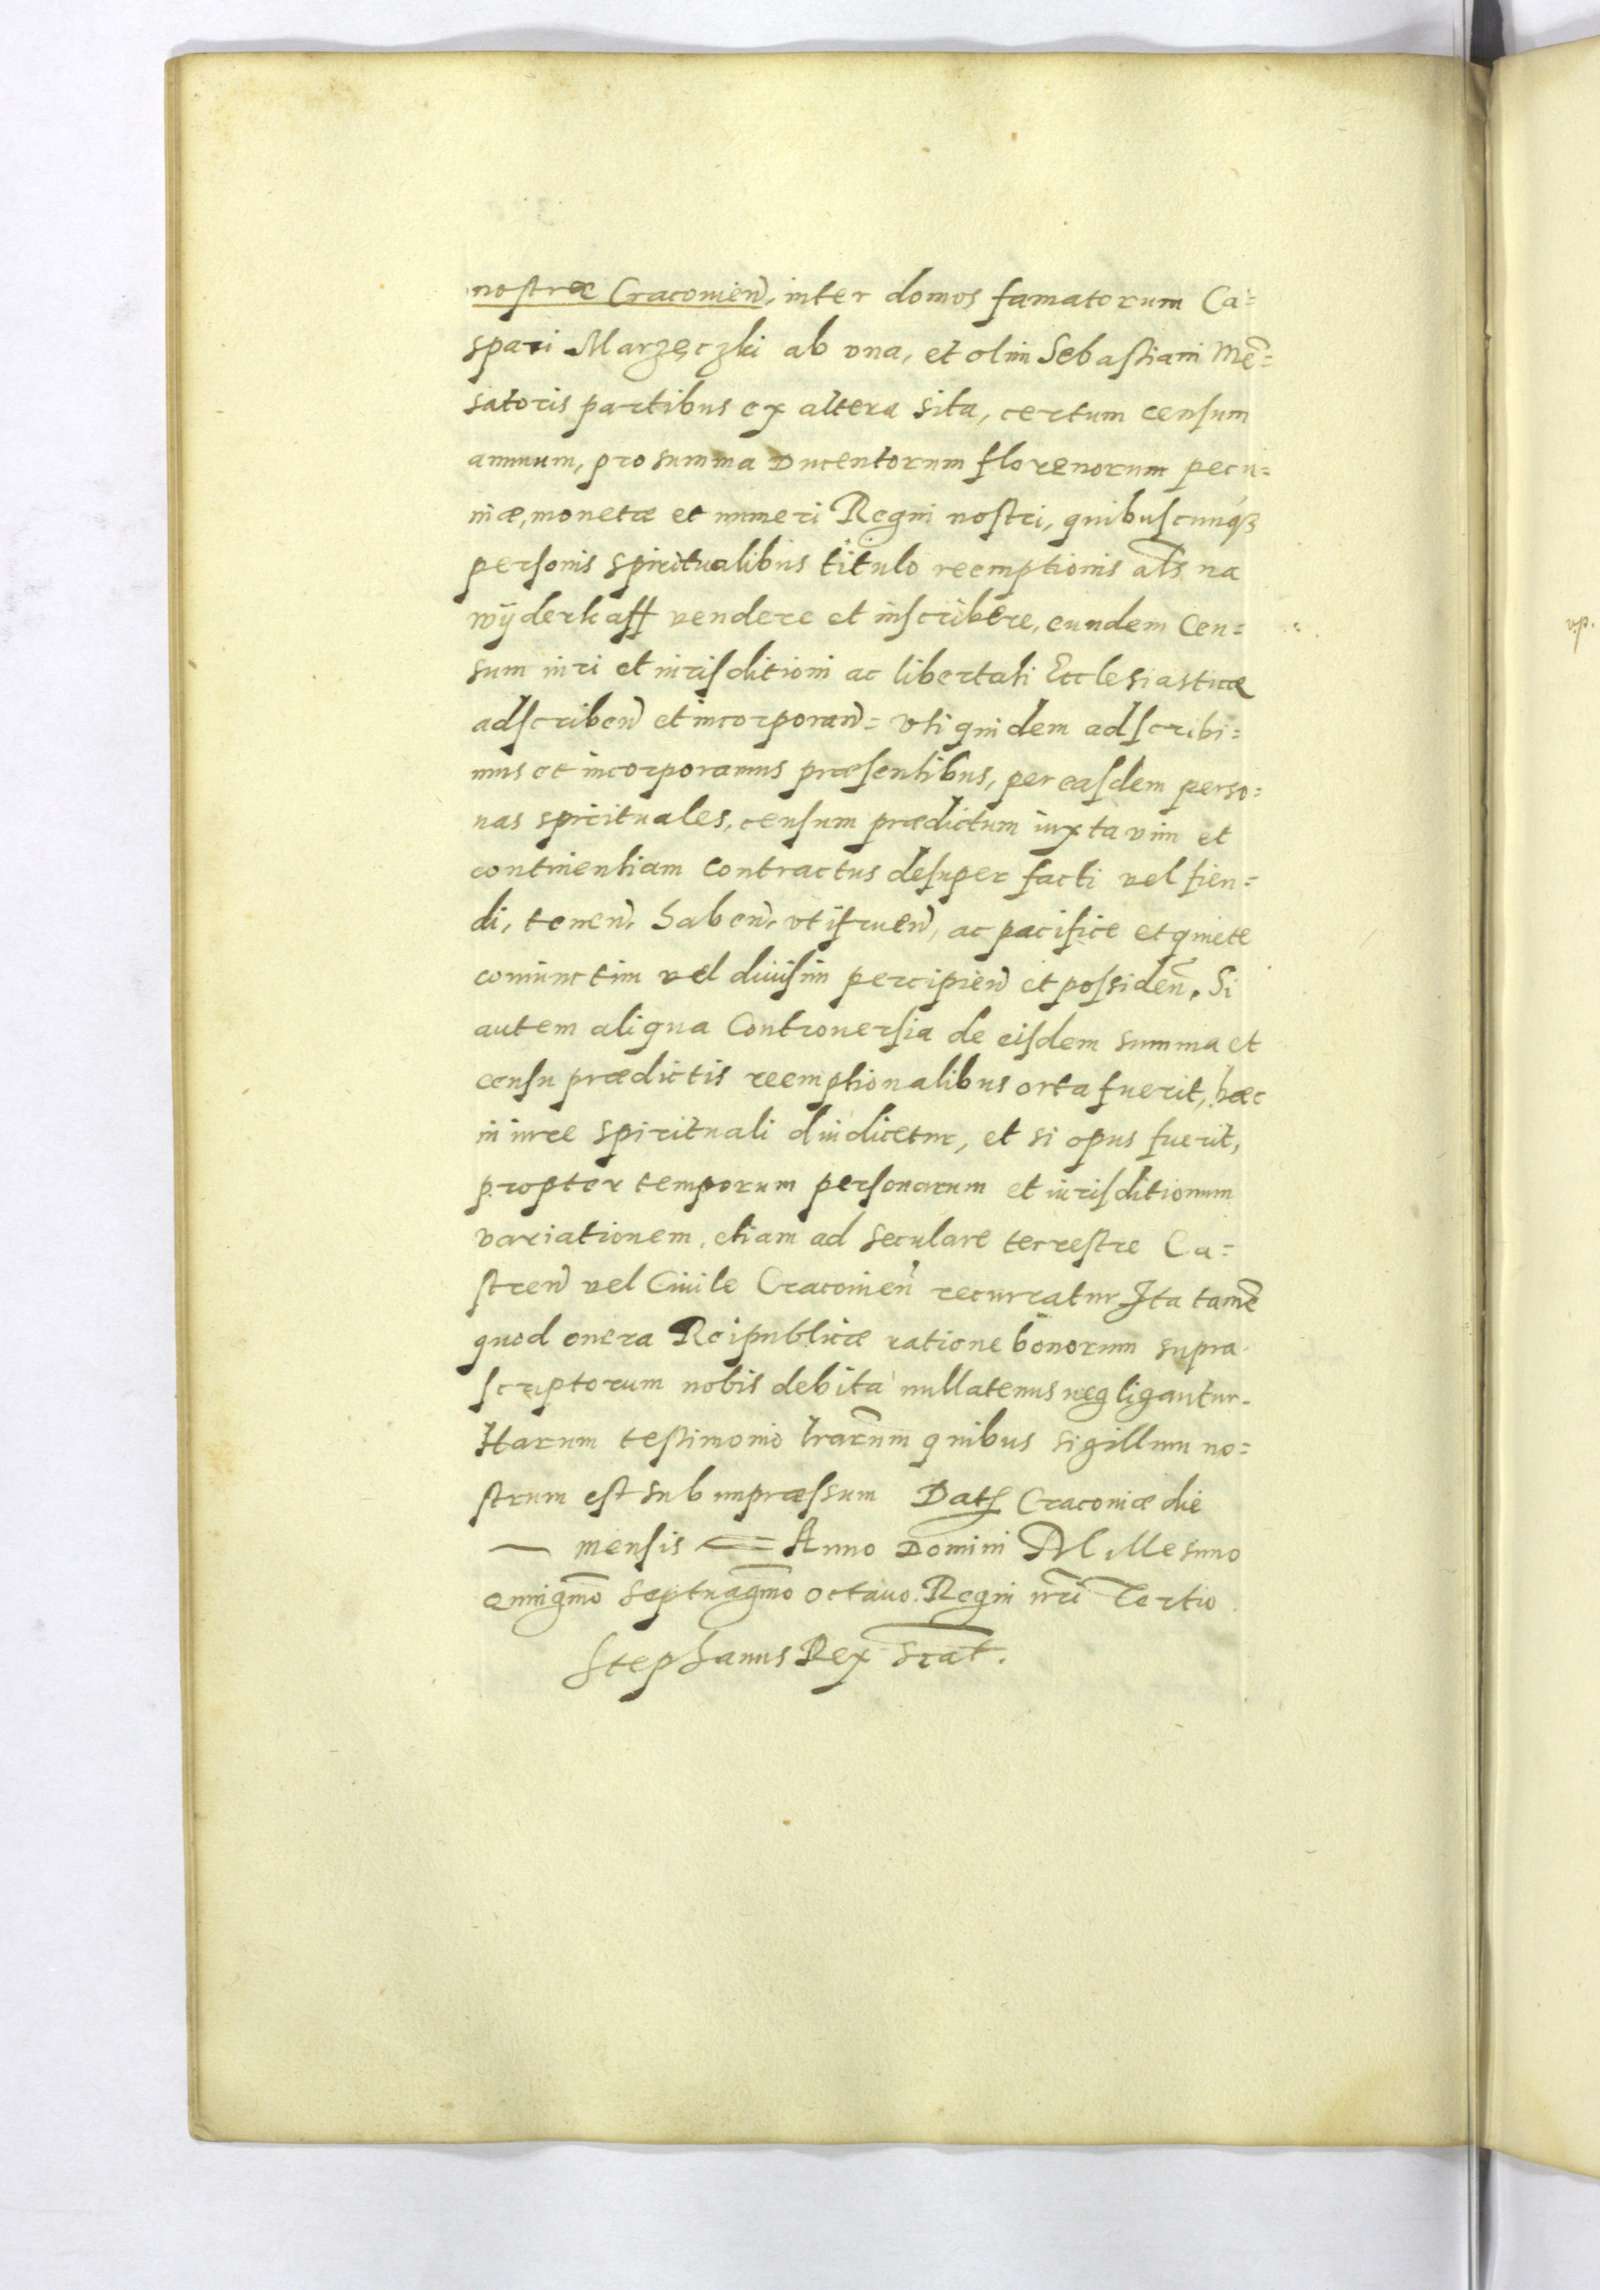 nostræ Cracouien̄, inter domos famatorum Ca=
spari Marzęczki ab vna, et olim Sebastiani Mē=
satoris partibus ex altera sita, certum censum
annuum, pro summa Ducentorum florenorum pecu=
niæ, monetæ et numeri Regni nostri, quibuscunq3
personis spiritualibus titulo reemptionis als na
wÿderkaff vendere et inscribere, eundem Cen=
sum iuri et iurisditioni ac libertati Ecclesiasticæ
adscriben̄ et incorporan̄= vti quidem adscribi=
mus et incorporamus præsentibus, per easdem perso=
nas spirituales, censum prædictum iuxta vim et
continentiam Contractus desuper facti vel fien=
di, tenen̄. haben̄. vtifruen̄, ac pacifice et quiete
coniunctim vel diuisim percipien̄ et possiden̄. Si
autem aliqua Controuersia de eisdem summa et
censu prædictis reemptionalibus orta fuerit, hæc
in iure spirituali diiudicetur, et si opus fuerit,
propter temporum personarum et iurisditionum
variationem, etiam ad seculare terrestre Ca=
stren̄ vel Ciuile Cracouien̄ recurratur Ita tamē
quod onera Reipublicæ ratione bonorum supra
scriptorum nobis debita nullatenus negligantur.
Harum testimonio lrarum quibus sigillum no=
strum est sub impræssum Dat Cracouiæ die
— mensis = Anno Domini Millesimo
Quingmo Septuagmo octauo. Regni nri Tertio
Stephanus Rex scat.
vp.